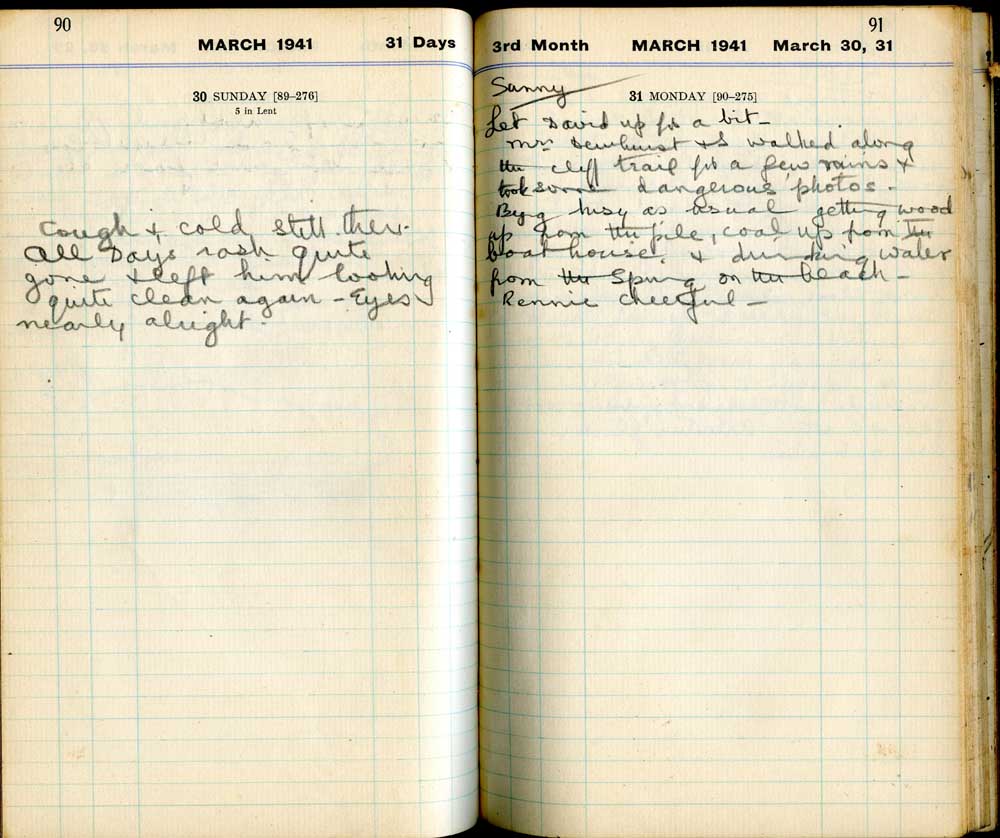 90
MARCH 1941 31 Days
30 SUNDAY [89–276]
5 in Lent
Cough & cold still there.
All Days rash quite
gone & left him looking
quite clean again – Eyes
nearly alright.
91
3rd Month MARCH 1941 March 30, 31
Sunny
31 MONDAY [90–275]
Let David up for a bit –
Mrs Dewhurst & I walked along
the cliff trail for a few mins &
took some dangerous photos.
busy as usual getting wood
up from the pile, coal up from the
boat house, & drinking water
from the Spring on the beach –
Rennie cheerful –